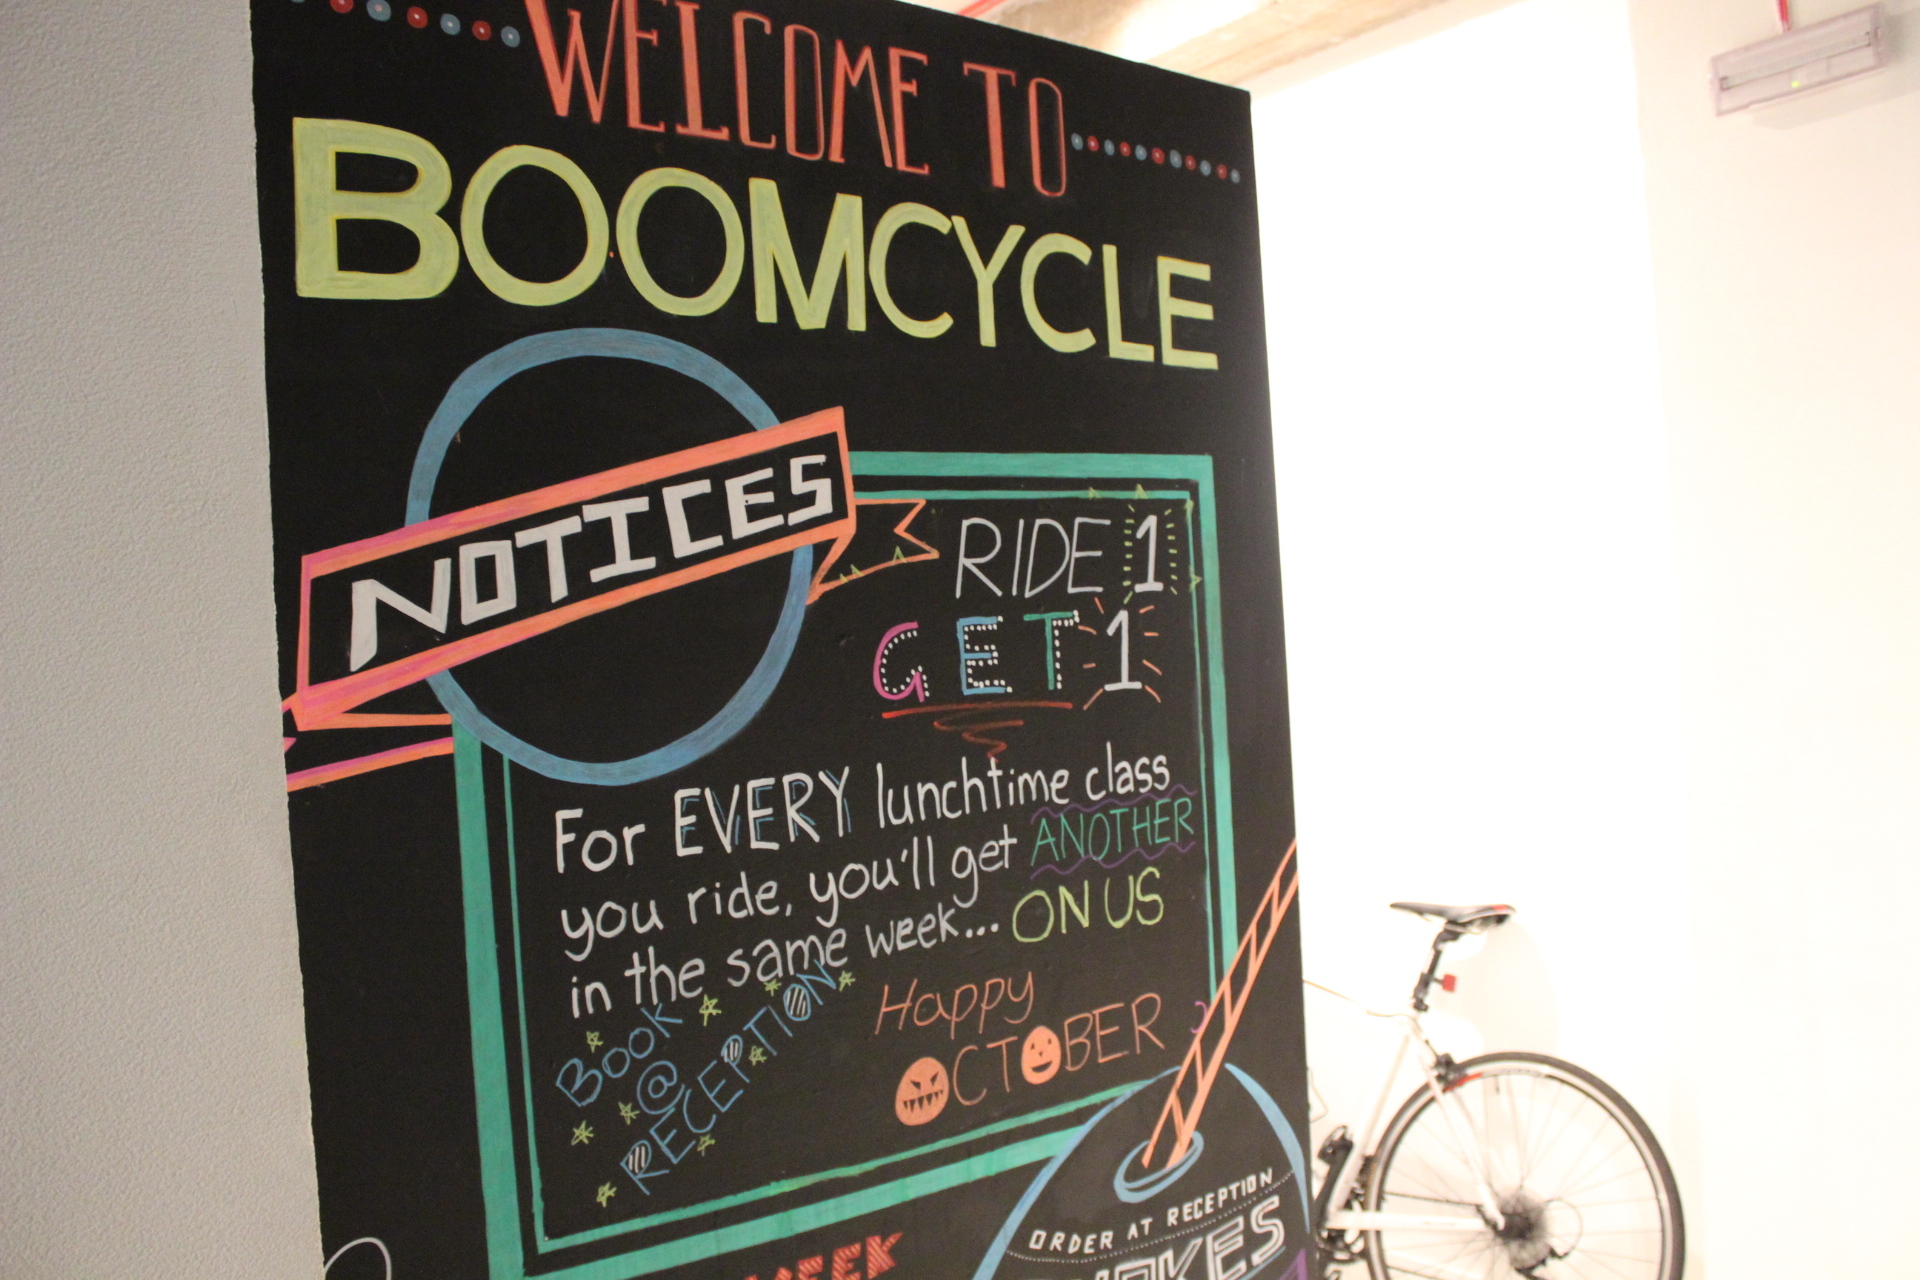 WELCOME TO
BOOMCYCLE
NOTICES
RIDE 1
GET 1
For EVERY lunchtime class
you ride, you'll get ANOTHER
in the same week... ON US
BOOK
@
RECEPTION
Happy
OCTOBER
ORDER AT RECEPTION